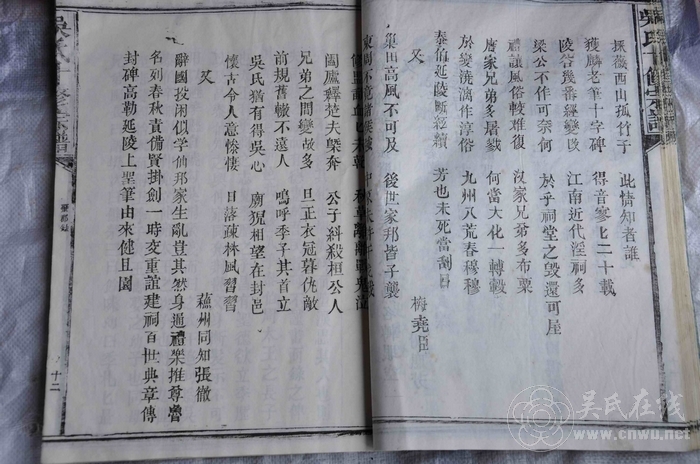 採薇西山孤竹子　此情知者誰
獲麟老筆十字碑　得音寥匕二十載
陵谷幾番經變改　江南近代淫祠多
梁公不作可奈何　於乎祠堂之毀還可屋
禮讓風俗較難復　沒家兄弟多布粟
唐家兄弟多屠戮　何當大化一轉轂
於變澆漓作淳俗　九州八荒春穆穆
泰伯延陵斷經續　芳也未死當刮目
又　梅堯臣
高風不可及　後世家邦皆子襲
東周不意諸侯
闔廬釋楚夫槩奔　公子糾殺桓公人
兄弟之間變故多　旦正衣冠暮仇敵
前規舊轍不遠人　嗚呼季子其首立
吳氏猶有得吳心　廟貌相望在封邑
懷古令人意慘悽　日落疎林風習習
又　蘇州同知張徹
辭國投閑似學仙邦家生亂豈其然身通禮樂推尊魯
名列春秋責備賢掛劍一時交重誼建祠百世典章傳
封碑高勒延陵上聖筆由來健且圓
十二
吴氏在线
www.cnwu.net